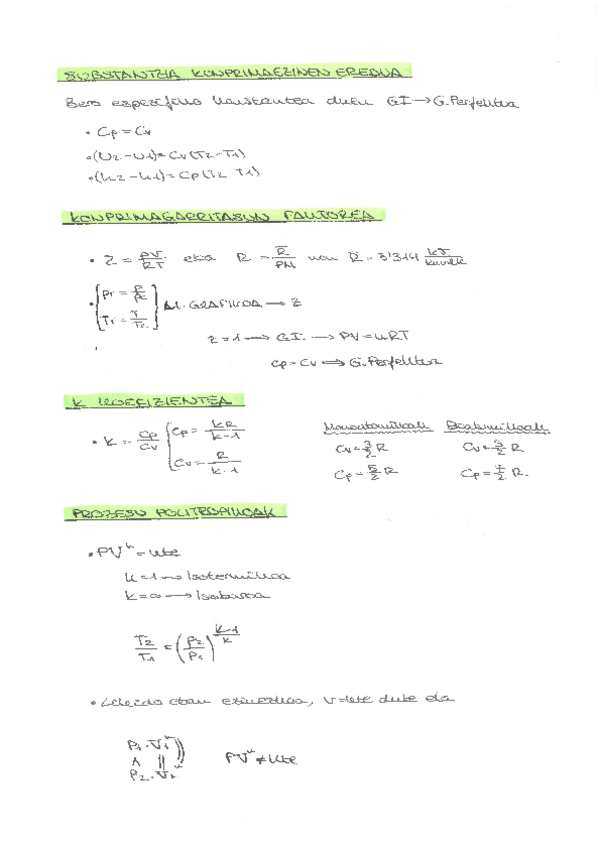 SUBSTANTZIA KONPRIMAEZINEN EREDUA
Bero espezifiko konstantea duku GI → G. Perfektua
• Cp = Cv
• (U2 - U1) = Cv (T2 - T1)
• (h2 - h1) = Cp (T2 T1)
KONPRIMAGARRITASUN FAKTOREA
• Z = PV/RT eta R = R̅/PM non R̅ = 8'314 kJ/kmolK
• { Pr = P/Pc
Tr = T/Tc } A1. GRAFIKOA → Z
Z = 1 → GI. → PV = nRT
Cp = Cv → G. Perfektua
K KOEFIZIENTEA
• K = Cp/Cv { Cp = kR/k-1
Cv = R/k-1
Monoatomikoak Biatomikoak
Cv = 3/2 R Cv = 5/2 R
Cp = 5/2 R Cp = 7/2 R.
PROZESU POLITROPIKOAK
• PV^k = kte
k = 1 → Isotermikoa
k = 0 → Isobaroa
T2/T1 = (P2/P1)^(k-1/k)
• Likido etan ezinezkoa, V = kte dute eta
P1 · V1^k
P2 · V2^k
PV^k ≠ kte